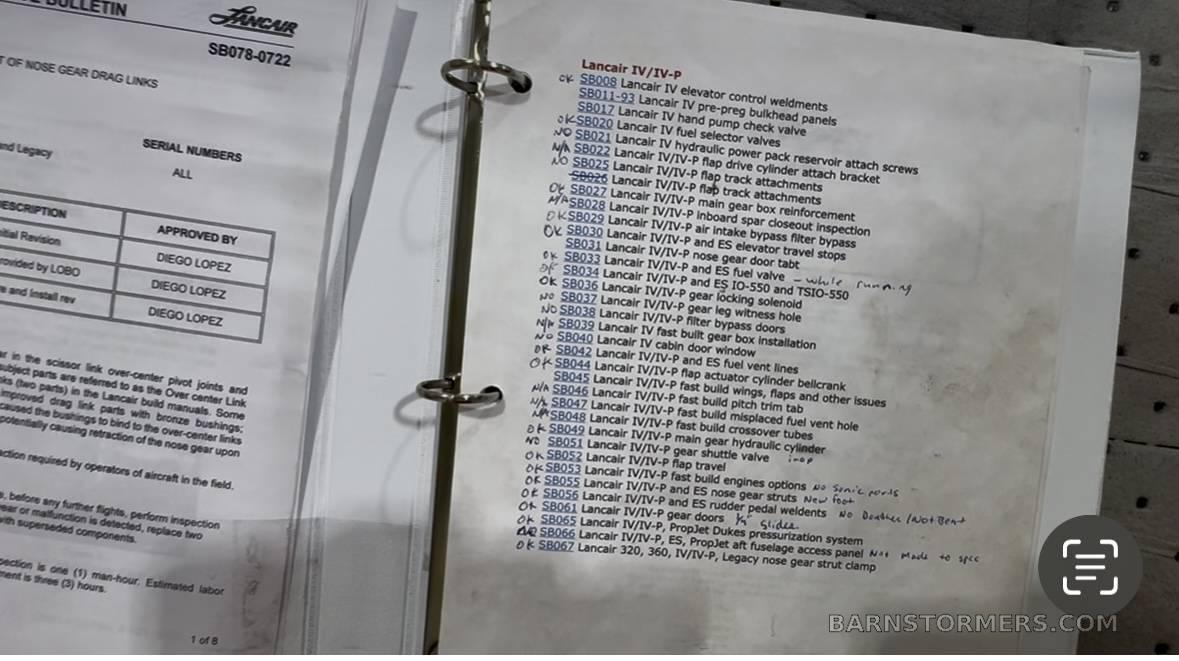 BULLETIN
LANCAIR
SB078-0722
OF NOSE GEAR DRAG LINKS
and Legacy
SERIAL NUMBERS
ALL
DESCRIPTION APPROVED BY
Initial Revision DIEGO LOPEZ
provided by LOBO DIEGO LOPEZ
and Install rev DIEGO LOPEZ
in the scissor link over-center pivot joints and
subject parts are referred to as the Over center Link
(two parts) in the Lancair build manuals. Some
improved drag link parts with bronze bushings;
caused the bushings to bind to the over-center links
potentially causing retraction of the nose gear upon
action required by operators of aircraft in the field.
before any further flights, perform inspection
wear or malfunction is detected, replace two
with superseded components.
is one (1) man-hour. Estimated labor
is three (3) hours.
1 of 8
Lancair IV/IV-P
OK SB008 Lancair IV elevator control weldments
SB011-93 Lancair IV pre-preg bulkhead panels
SB017 Lancair IV hand pump check valve
OK SB020 Lancair IV fuel selector valves
NO SB021 Lancair IV hydraulic power pack reservoir attach screws
N/A SB022 Lancair IV/IV-P flap drive cylinder attach bracket
NO SB025 Lancair IV/IV-P flap track attachments
SB026 Lancair IV/IV-P flap track attachments
OK SB027 Lancair IV/IV-P main gear box reinforcement
N/A SB028 Lancair IV/IV-P inboard spar closeout inspection
OK SB029 Lancair IV/IV-P air intake bypass filter bypass
OK SB030 Lancair IV/IV-P and ES elevator travel stops
SB031 Lancair IV/IV-P nose gear door tabt
OK SB033 Lancair IV/IV-P and ES fuel valve - while running
OK SB034 Lancair IV/IV-P and ES IO-550 and TSIO-550
OK SB036 Lancair IV/IV-P gear locking solenoid
NO SB037 Lancair IV/IV-P gear leg witness hole
NO SB038 Lancair IV/IV-P filter bypass doors
N/A SB039 Lancair IV fast built gear box installation
NO SB040 Lancair IV cabin door window
OK SB042 Lancair IV/IV-P and ES fuel vent lines
OK SB044 Lancair IV/IV-P flap actuator cylinder bellcrank
SB045 Lancair IV/IV-P fast build wings, flaps and other issues
N/A SB046 Lancair IV/IV-P fast build pitch trim tab
N/A SB047 Lancair IV/IV-P fast build misplaced fuel vent hole
N/A SB048 Lancair IV/IV-P fast build crossover tubes
OK SB049 Lancair IV/IV-P main gear hydraulic cylinder
NO SB051 Lancair IV/IV-P gear shuttle valve inop
OK SB052 Lancair IV/IV-P flap travel
OK SB053 Lancair IV/IV-P fast build engines options No Sonic ports
OK SB055 Lancair IV/IV-P and ES nose gear struts New foot
OK SB056 Lancair IV/IV-P and ES rudder pedal weldents No /Not Bent
OK SB061 Lancair IV/IV-P gear doors slider
OK SB065 Lancair IV/IV-P, PropJet Dukes pressurization system
SB066 Lancair IV/IV-P, ES, PropJet aft fuselage access panel Not Made to spec
OK SB067 Lancair 320, 360, IV/IV-P, Legacy nose gear strut clamp
BARNSTORMERS.COM